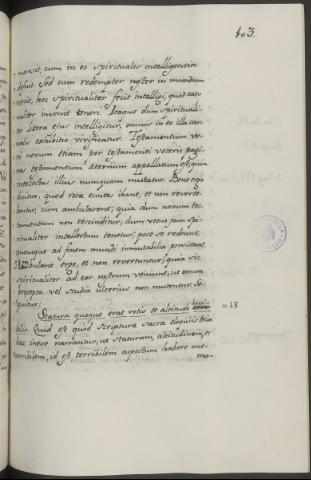 403.
mansit, cum in eo spiritualis intelligentia
defuit. Sed cum redemptor noster in mundum
venit, hoc spiritualiter fecit intelligi, quod car-
naliter invenit teneri. Itaque dum spirituali-
ter litera ejus intelligitur, omnis in eo illa car-
nalis exhibitio vivificatur. Testamentum ve-
ro novum etiam per testamenti veteris pagi-
nas testamentum æternum appellatum est, quia
intellectus illius numquam mutatur. Bene ergo
dicitur, quod rotæ euntes ibant, et non rever te-
bantur, cum ambularent; quia dum novum tes-
tamentum non rescinditur, dum vetus jam spi-
ritualiter intellectum tenetur; post se redeunt,
quæ usque ad finem mundi immutabilia persistunt.
Ambulant ergo, et non revertuntur; quia sic
spiritualiter ad cor nostrum veniunt, ut eorum
præcepta vel studia ulterius non mutentur. Se-
quitur:
Statura quoque erat rotis et altitudo horri-
v. 18
bilis. Quid est quod Scriptura sacra eloquiis tria
hæc inesse narrantur, ut staturam, altitudinem, et
horribilem, id est, terribilem aspectum habere me-
mo-